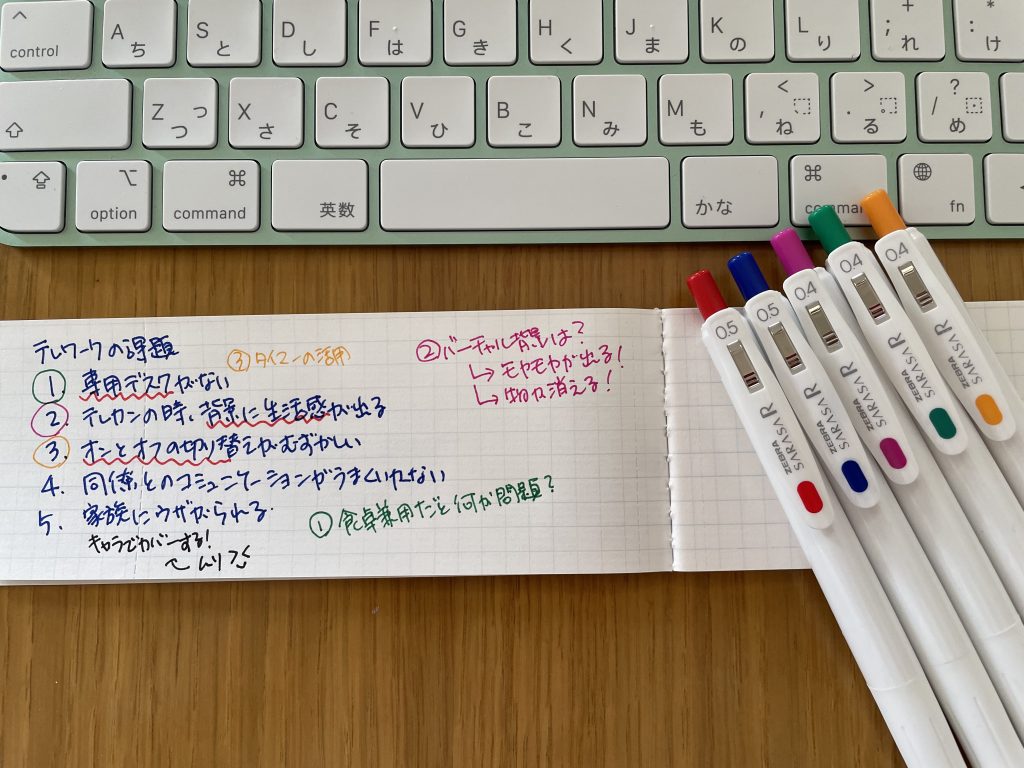 control
A ち
S と
D し
F は
G き
H く
J ま
K の
L り
+ ; れ
* : け
Z っ つ
X さ
C そ
V ひ
B こ
N み
M も
< , ね
> . 。 る
? / ・ め
option
command
英数
かな
command
fn
0.5
0.5
0.4
0.4
0.4
ZEBRA SARASA R
ZEBRA SARASA R
ZEBRA SARASA R
ZEBRA SARASA R
ZEBRA SARASA R
テレワークの課題
③タイマーの活用
1. 専用デスクがない
2. テレカンの時、背景に生活感が出る
3. オンとオフの切り替えがむずかしい
4. 同僚とのコミュニケーションがうまくいかない
5. 家族にウザがられる
キャラでカバーする!
②バーチャル背景は?
モヤモヤが出る!
物が消える!
①食卓兼用だと何が問題?